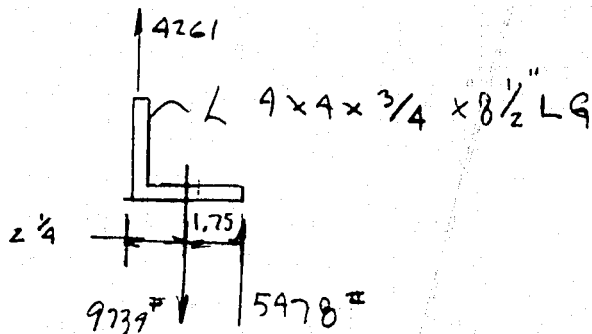 4261
L 4 x 4 x 3/4 x 8 1/2" LG
2 1/4
1.75
9739#
5478#